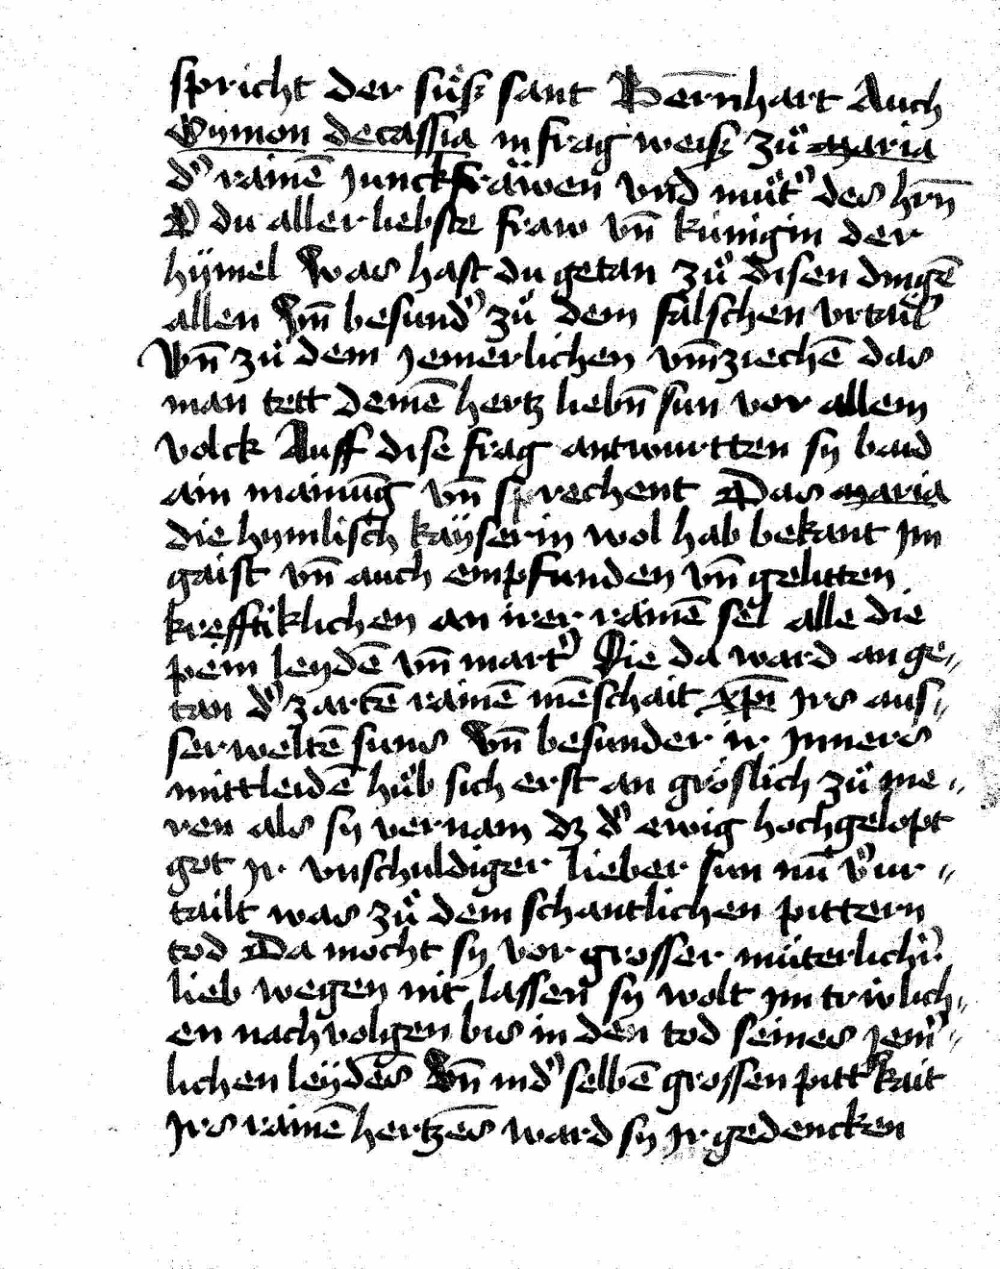 spricht der sůſʒ sant Bern̄hart Auch
Symon decassia in frag weiſʒ zů maria
d' rainē junckfräwen vnd můt' des hrn̄
O du aller liebste fraw vn̄ künigin der
hymel Was hast du getan zů disen dingē
allen Vn̄ besund' zů dem falschen vrtail
Vn̄ zů dem jemerlichen vm̄ziechē das
man tett deinē hertz liebn̄ sun vor allem
volck Auff dise frag antwurtten sy baid
ain mainūg vn̄ sprechent Das maria
die hymlisch kayserin wol hab bekant jm
gaist vn̄ auch empfunden vn̄ gelitten
krefftiklichen an irer rainē sel alle die
pein leydē vn̄ mart' Die da ward an ge„
tan d' zartē rainē mēschait xp̄i jrs aus„
serweltē suns Vn̄ besunder ir jnners
mittleidē hůb sich erst an gröslich zů me„
ren als sy vernam dz d' ewig hochgelopt
got jr vnschuldiger lieber sun nū v'ur„
tailt was zů dem schantlichen pittern
tod Da mocht sy vor grosser müterlich'
lieb wegen nit lassen sy wolt jm triwlich„
en nachvolgen bis in den tod seines jem'„
lichen leydēs Vn̄ in d' selbē grossen pitt'kait
jrs rainē hertzēs ward sy jr gedencken